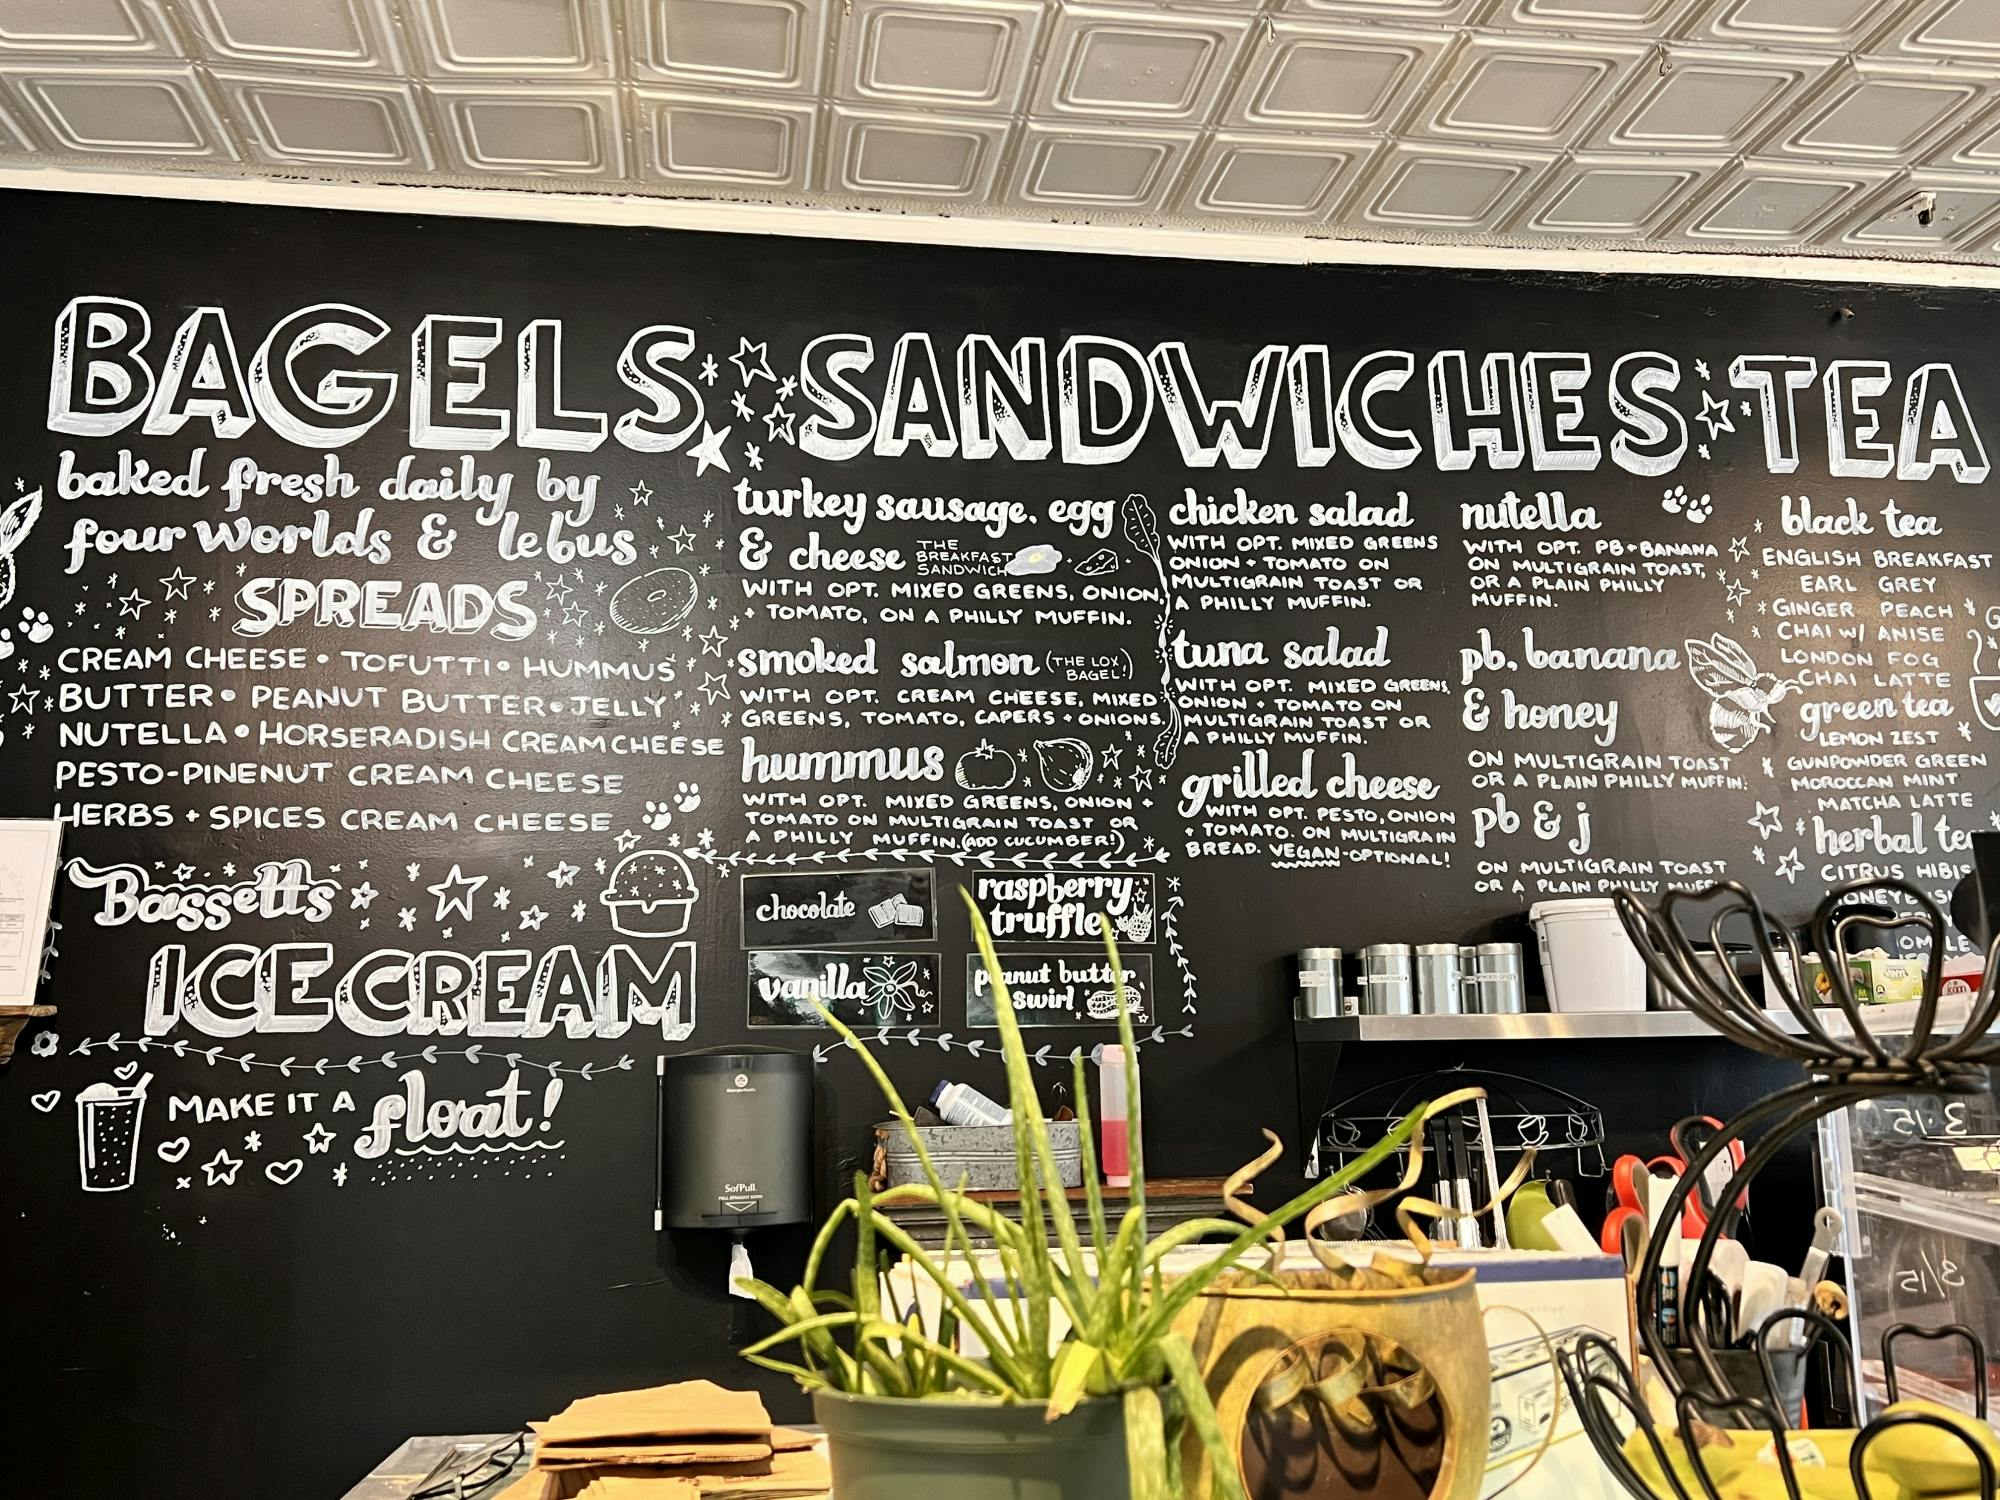 BAGELS SANDWICHES TEA
baked fresh daily by
four worlds & le bus
SPREADS
CREAM CHEESE • TOFUTTI • HUMMUS
BUTTER • PEANUT BUTTER • JELLY
NUTELLA • HORSERADISH CREAM CHEESE
PESTO-PINENUT CREAM CHEESE
HERBS + SPICES CREAM CHEESE
Bassetts
ICE CREAM
MAKE IT A float!
turkey sausage, egg
& cheese THE BREAKFAST SANDWICH
WITH OPT. MIXED GREENS, ONION,
+ TOMATO, ON A PHILLY MUFFIN.
smoked salmon (THE LOX BAGEL!)
WITH OPT. CREAM CHEESE, MIXED
GREENS, TOMATO, CAPERS + ONIONS.
hummus
WITH OPT. MIXED GREENS, ONION +
TOMATO ON MULTIGRAIN TOAST OR
A PHILLY MUFFIN. (ADD CUCUMBER!)
chocolate
raspberry
truffle
vanilla
peanut butter
swirl
chicken salad
WITH OPT. MIXED GREENS
ONION + TOMATO ON
MULTIGRAIN TOAST OR
A PHILLY MUFFIN.
tuna salad
WITH OPT. MIXED GREENS,
ONION + TOMATO ON
MULTIGRAIN TOAST OR
A PHILLY MUFFIN.
grilled cheese
WITH OPT. PESTO, ONION
+ TOMATO. ON MULTIGRAIN
BREAD. VEGAN-OPTIONAL!
nutella
WITH OPT. PB + BANANA
ON MULTIGRAIN TOAST,
OR A PLAIN PHILLY
MUFFIN.
pb, banana
& honey
ON MULTIGRAIN TOAST
OR A PLAIN PHILLY MUFFIN.
pb & j
ON MULTIGRAIN TOAST
OR A PLAIN PHILLY
black tea
ENGLISH BREAKFAST
EARL GREY
GINGER PEACH
CHAI W/ ANISE
LONDON FOG
CHAI LATTE
green tea
LEMON ZEST
GUNPOWDER GREEN
MOROCCAN MINT
MATCHA LATTE
herbal tea
CITRUS HIBIS
SofPull
VINYL
3/15
3/15